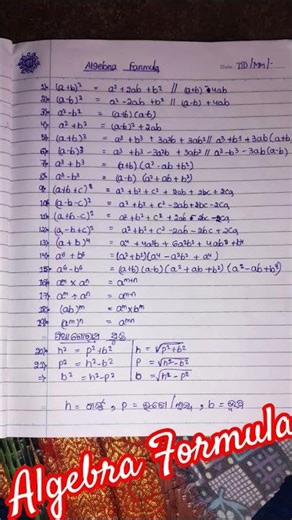 Algebra Formula
Date: DD/MM/
1) (a+b)² = a²+2ab+b² // (a-b)²+4ab
2) (a-b)² = a²-2ab+b² // (a+b)²-4ab
3) a²-b² = (a+b)(a-b)
4) a²+b² = (a+b)²-2ab
5) (a+b)³ = a³+b³+3a²b+3ab² // a³+b³+3ab(a+b)
6) (a-b)³ = a³-b³-3a²b+3ab² // a³-b³-3ab(a-b)
7) a³+b³ = (a+b)(a²-ab+b²)
8) a³-b³ = (a-b)(a²+ab+b²)
9) (a+b+c)² = a²+b²+c²+2ab+2bc+2ca
10) (a-b-c)² = a²+b²+c²-2ab+2bc-2ca
11) (a+b-c)² = a²+b²+c²+2ab-2bc-2ca
12) (a-b+c)² = a²+b²+c²-2ab-2bc+2ca
13) (a+b)⁴ = a⁴+4a³b+6a²b²+4ab³+b⁴
14) a⁶+b⁶ = (a²+b²)(a⁴-a²b²+a⁴)
15) a⁶-b⁶ = (a+b)(a-b)(a²+ab+b²)(a²-ab+b²)
16) aᵐ×aⁿ = aᵐ⁺ⁿ
17) aᵐ÷aⁿ = aᵐ⁻ⁿ
18) (ab)ᵐ = aᵐbᵐ
19) (aᵐ)ⁿ = aᵐⁿ
20) h² = p²+b² h = √p²+b²
21) p² = h²-b² p = √h²-b²
⇒ b² = h²-p² b = √h²-p²
h = , p = , b =
Algebra Formula